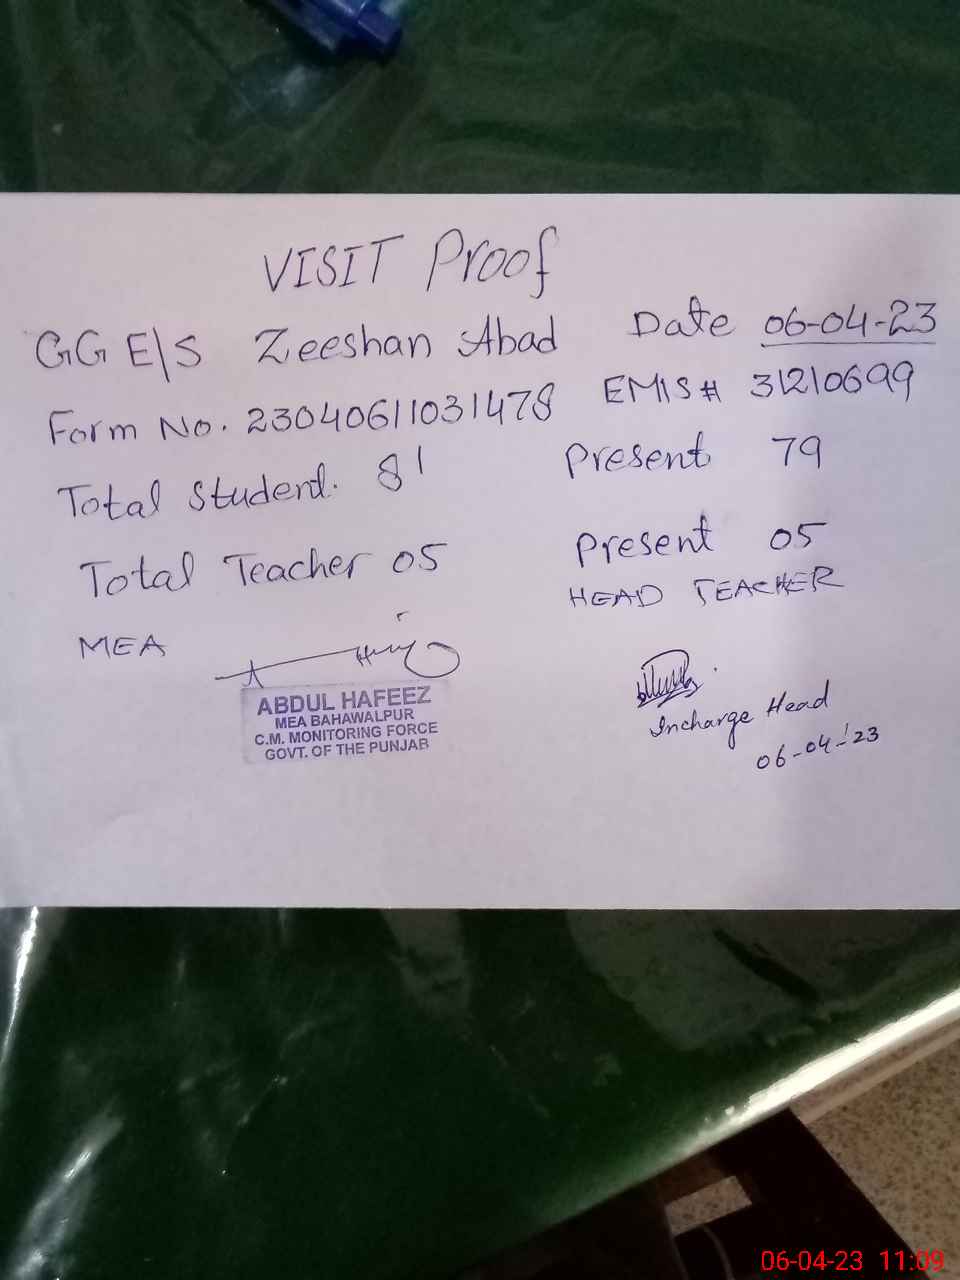 VISIT Proof
GG E\S Zeeshan Abad Date 06-04-23
Form No. 23040611031478 EMIS# 31210699
Total Student. 81 Present 79
Total Teacher 05 Present 05
MEA HEAD TEACHER
ABDUL HAFEEZ
MEA BAHAWALPUR
C.M. MONITORING FORCE
GOVT. OF THE PUNJAB
Incharge Head
06-04-23
06-04-23 11:09